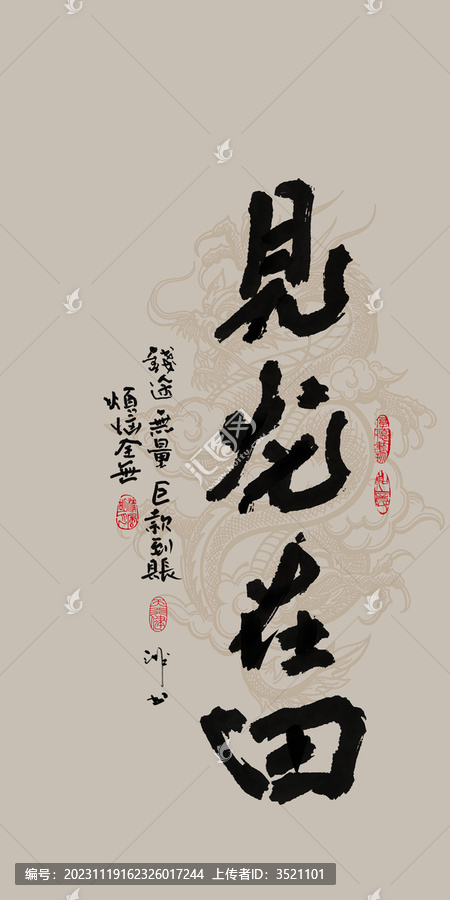 見龙在田
錢途無量巨款到賬
煩惱全無
汇图网
编号：20231119162326017244 上传者ID：3521101